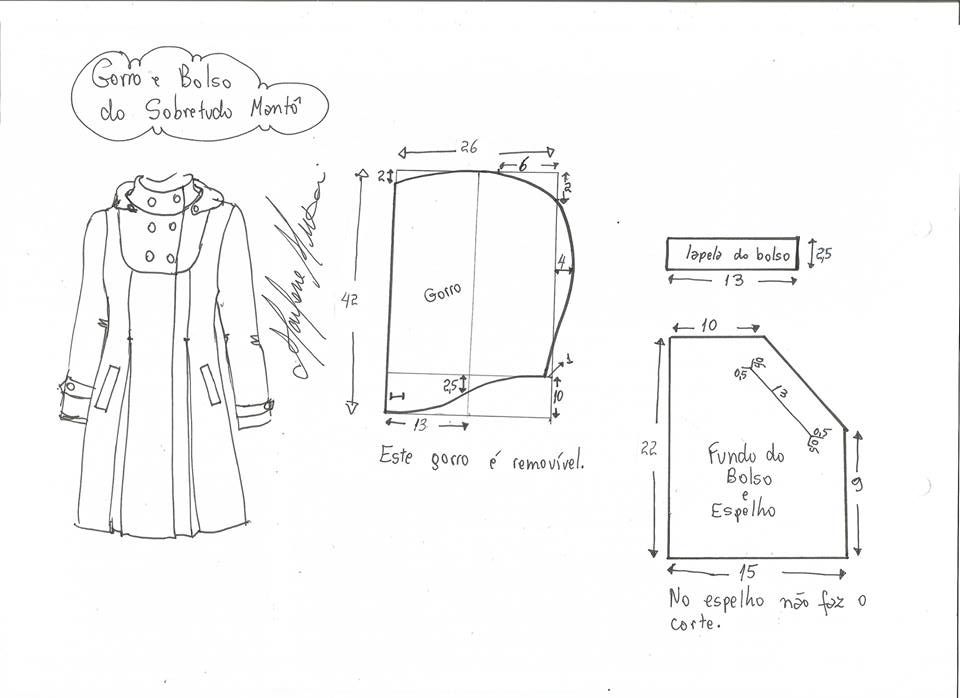 Gorro e Bolso
do Sobretudo Mantô
26
6
2
2
42
4
Gorro
1
2,5
10
13
Este gorro é removível.
lapela do bolso
2,5
13
10
0,5
0,5
13
0,5
0,5
22
Fundo do
Bolso
e
Espelho
9
15
No espelho não faz o
corte.